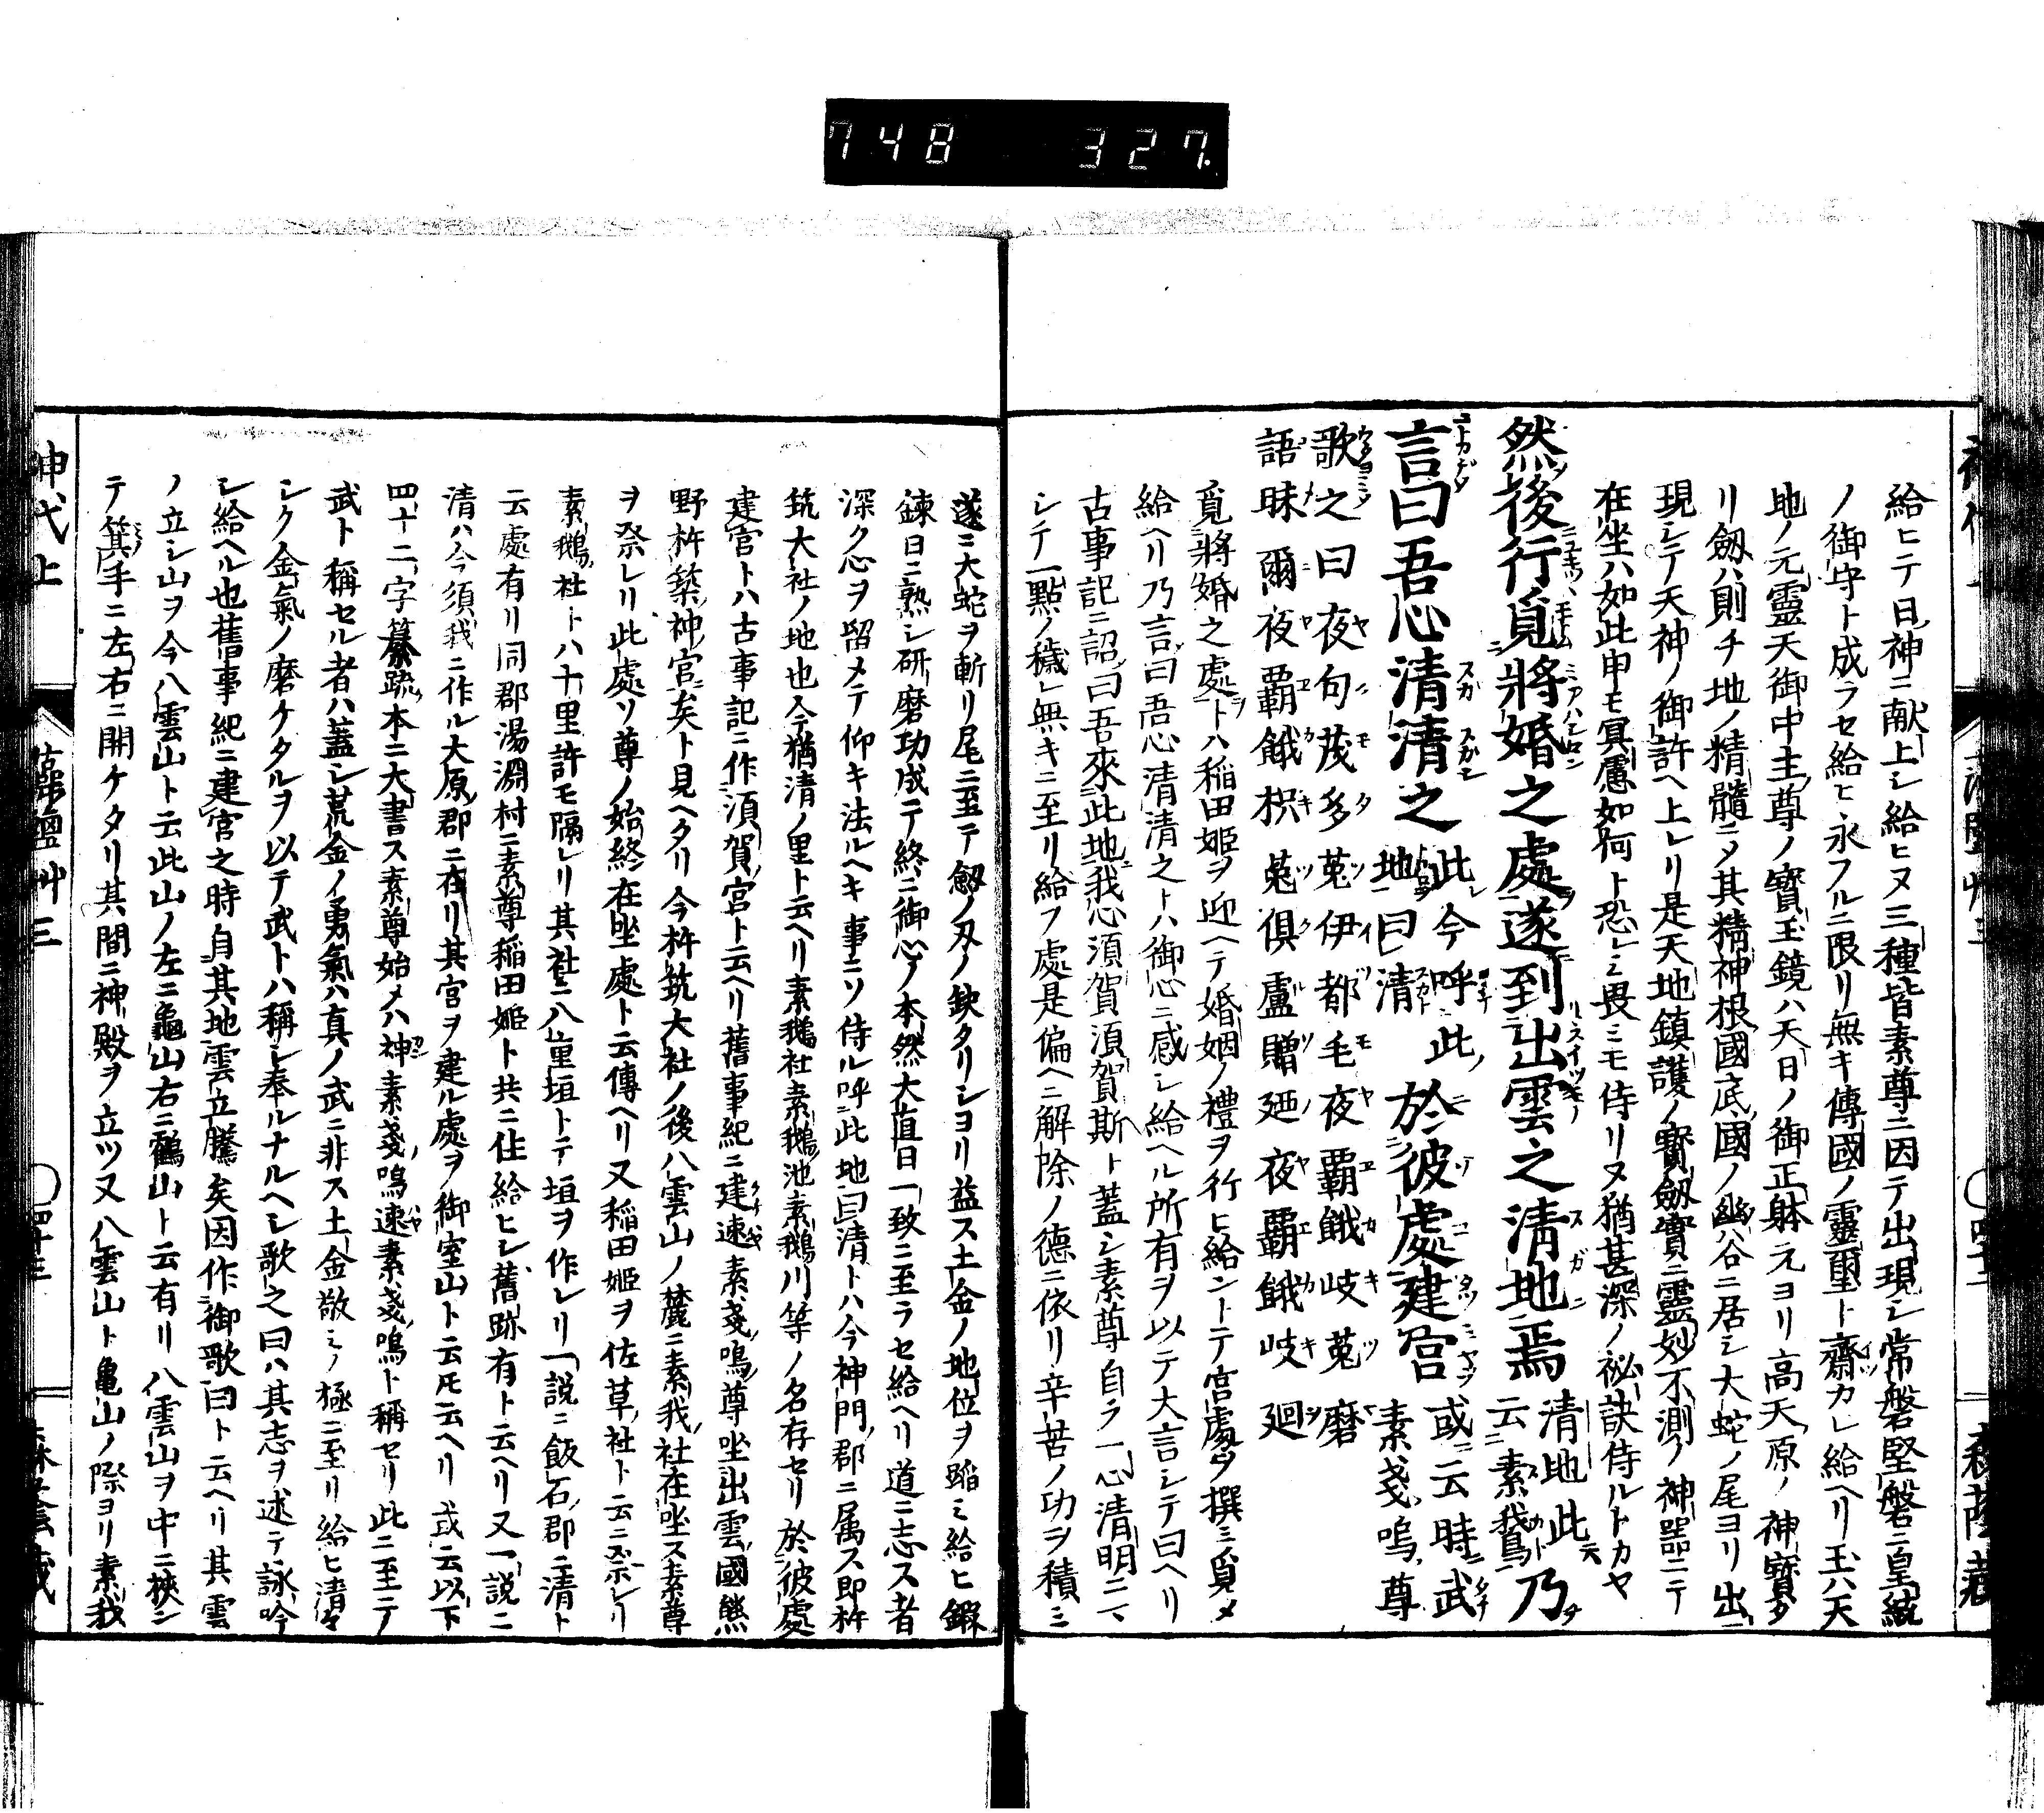 748 327.
給ヒテ日神ニ献上シ給ヒヌ三種皆素尊ニ因テ出現シ常磐堅磐ニ皇統
ノ御守ト成ラセ給ヒ永フルニ限リ無キ傳國ノ靈璽ト齋カレ給ヘリ玉ハ天
地ノ元靈天御中主尊ノ寶玉鏡ハ天日ノ御正躰元ヨリ高天原ノ神寶タ
リ劔ハ則チ地ノ精髓ニノ其精神根國底國ノ幽谷ニ居シ大蛇ノ尾ヨリ出
現シテ天神ノ御許ヘ上レリ是天地鎮護ノ寶劔實ニ靈妙不測ノ神器ニテ
在坐ハ如此申モ冥慮如何ト恐レミ畏ミモ侍リヌ猶甚深ノ祕訣侍ルトカヤ
然後行覓將婚之處遂到出雲之清地焉 清地此云素鵝 乃
言曰吾心清清之 此今呼此地曰清 於彼處建宮 或云時武素戔嗚尊
歌之曰夜句茂多菟伊都毛夜覇餓岐菟磨
語昧爾夜覇餓枳菟倶盧贈廼夜覇餓岐廻
覓將婚之處トハ稲田姫ヲ迎ヘテ婚姻ノ禮ヲ行ヒ給ントテ宮處ヲ撰ミ覓メ
給ヘリ乃言曰吾心清清之トハ御心ニ感シ給ヘル所有ヲ以テ大言シテ曰ヘリ
古事記ニ詔曰吾來此地我心須賀須賀斯ト蓋シ素尊自ラ一心清明ニ
シテ一點ノ穢レ無キニ至リ給フ處是偏ヘニ解除ノ德ニ依リ辛苦ノ功ヲ積ミ
遂ニ大蛇ヲ斬リ尾ニ至テ劔ノ刄ノ缺タリシヨリ益ス土金ノ地位ヲ蹈ミ給ヒ鍜
鍊日ニ熟シ研磨功成テ終ニ御心ノ本然大直日一致ニ至ラセ給ヘリ道ニ志ス者
深ク心ヲ留メテ仰キ法ルヘキ事ニソ侍ル呼此地曰清トハ今神門郡ニ属ス即杵
筑大社ノ地也今猶清ノ里ト云ヘリ素鵝社素鵝池素鵝川等ノ名存セリ於彼處
建宮トハ古事記ニ作須賀宮ト云ヘリ舊事紀ニ建速素戔嗚尊坐出雲國熊
野杵築神宮矣ト見ヘタリ今杵筑大社ノ後八雲山ノ麓ニ素我社在坐ス素尊
ヲ祭レリ此處ソ尊ノ始終在坐處ト云傳ヘリ又稲田姫ヲ佐草社ト云ニ祭レリ
素鵝社トハ十里許モ隔レリ其社ニ八重垣トテ垣ヲ作レリ一說ニ飯石郡ニ清ト
云處有リ同郡湯淵村ニ素尊稲田姫ト共ニ住給ヒシ舊跡有ト云ヘリ又一說ニ
清ハ今須我ニ作ル大原郡ニ在リ其宮ヲ建ル處ヲ御室山ト云ヒ云ヘリ或云以下
四十二字纂疏本ニ大書ス素尊始メハ神素戔嗚速素戔嗚ト稱セリ此ニ至ニテ
武ト稱セル者ハ蓋シ荒金ノ勇氣ハ真ノ武ニ非ス土金敬ミノ極ニ至リ給ヒ清々
シク金氣ノ磨ケタルヲ以テ武トハ稱シ奉ルナルヘシ歌之曰ハ其志ヲ述テ詠吟
シ給ヘル也舊事紀ニ建宮之時自其地雲立騰矣因作御歌曰ト云ヘリ其雲
ノ立シ山ヲ今八雲山ト云此山ノ左ニ龜山右ニ鶴山ト云有リ八雲山ヲ中ニ挾シ
テ箕手ニ左右ニ開ケタリ其間ニ神殿ヲ立ツ又八雲山ト亀山ノ際ヨリ素我
神代上 三